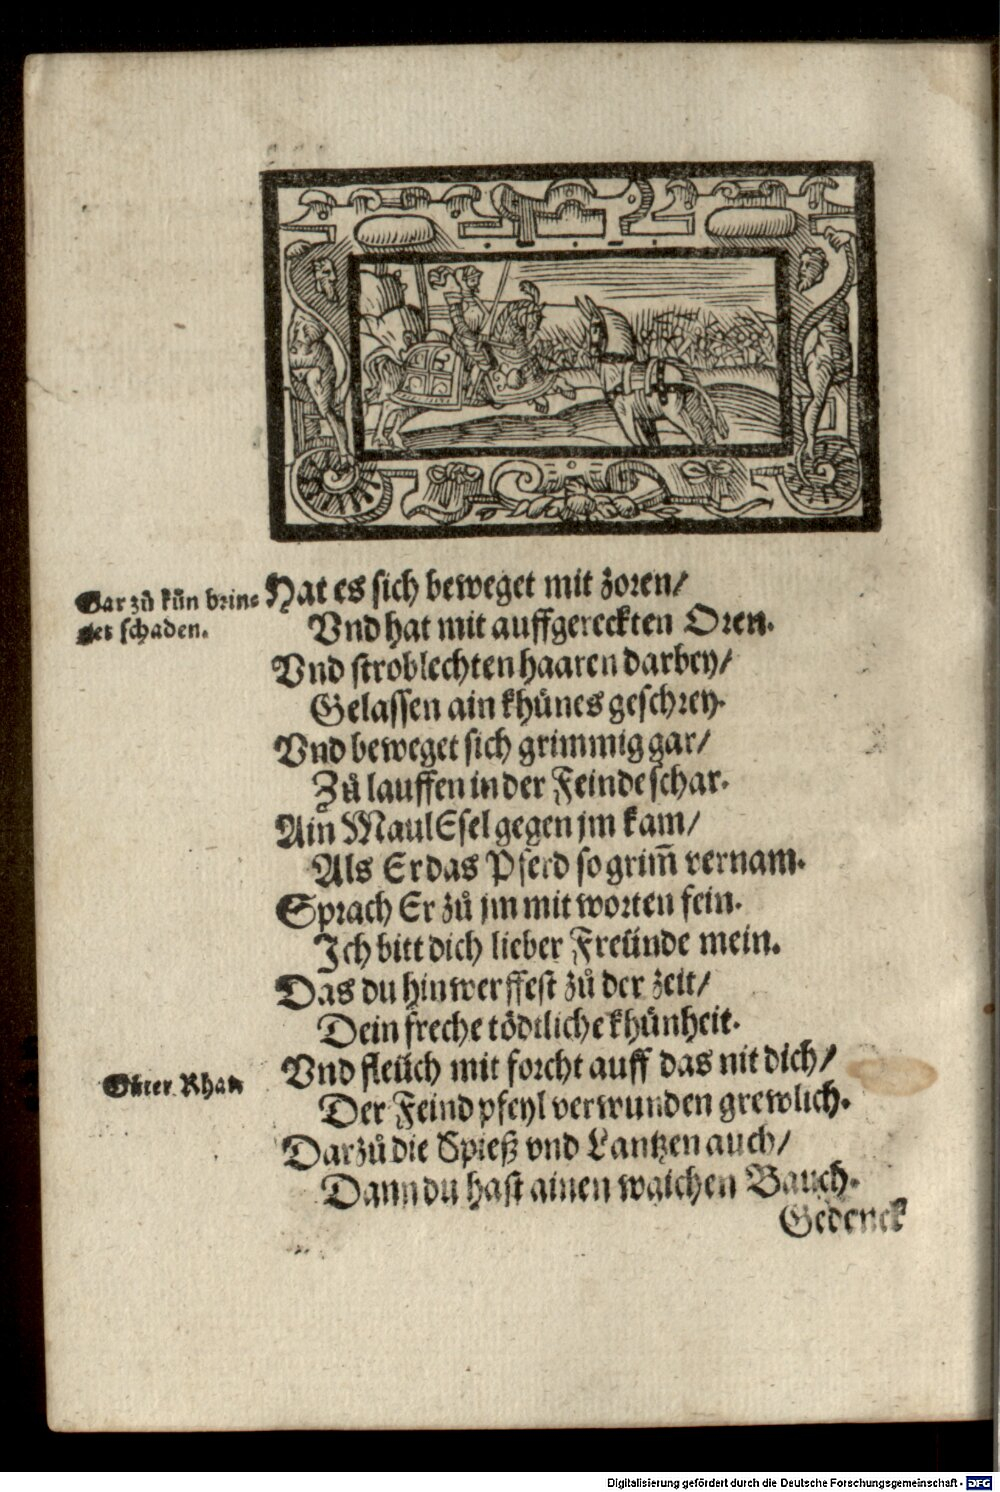 Gar zů kün brin⸗
get schaden.
Hat es sich beweget mit zoren/
Vnd hat mit auffgereckten Oren.
Vnd stroblechten haaren darbey/
Gelassen ain khünes geschrey.
Vnd beweget sich grimmig gar/
Zů lauffen in der Feinde schar.
Ain MaulEsel gegen jm kam/
Als Er das Pferd so grim̄ vernam.
Sprach Er zů jm mit worten fein.
Ich bitt dich lieber Freünde mein.
Das du hinwerffest zů der zeit/
Dein freche tödtliche khünheit.
Vnd fleüch mit forcht auff das nit dich/
Güter Rhat
Der Feind pfeyl verwunden grewlich.
Darzů die Spieß vnd Lantzen auch/
Dann du hast ainen waichen Bauch.
Gedenck
Digitalisierung gefördert durch die Deutsche Forschungsgemeinschaft - DFG